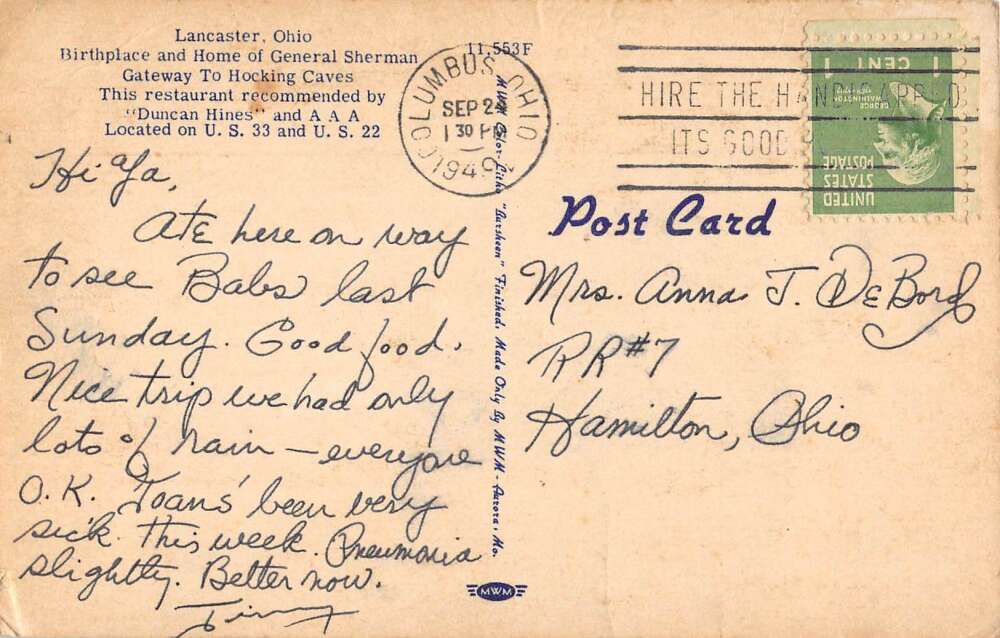 Lancaster, Ohio
Birthplace and Home of General Sherman
Gateway To Hocking Caves
This restaurant recommended by
"Duncan Hines" and A A A
Located on U. S. 33 and U. S. 22
11,553F
COLUMBUS, OHIO
SEP 24
1 30 PM
1949
HIRE THE HANDICAPPED
ITS GOOD
UNITED
STATES
POSTAGE
GEORGE
WASHINGTON
1 CENT 1
Hi Ya,
Ate here on way
to see Babs last
Sunday. Good food.
Nice trip we had only
lots of rain – everyone
O.K. Joans' been very
sick this week. Pneumonia
slightly. Better now.
MWM Color-Litho "Lursheen" Finished. Made Only By MWM - Aurora, Mo.
Post Card
Mrs. Anna J. DeBord
RR #7
Hamilton, Ohio
MWM